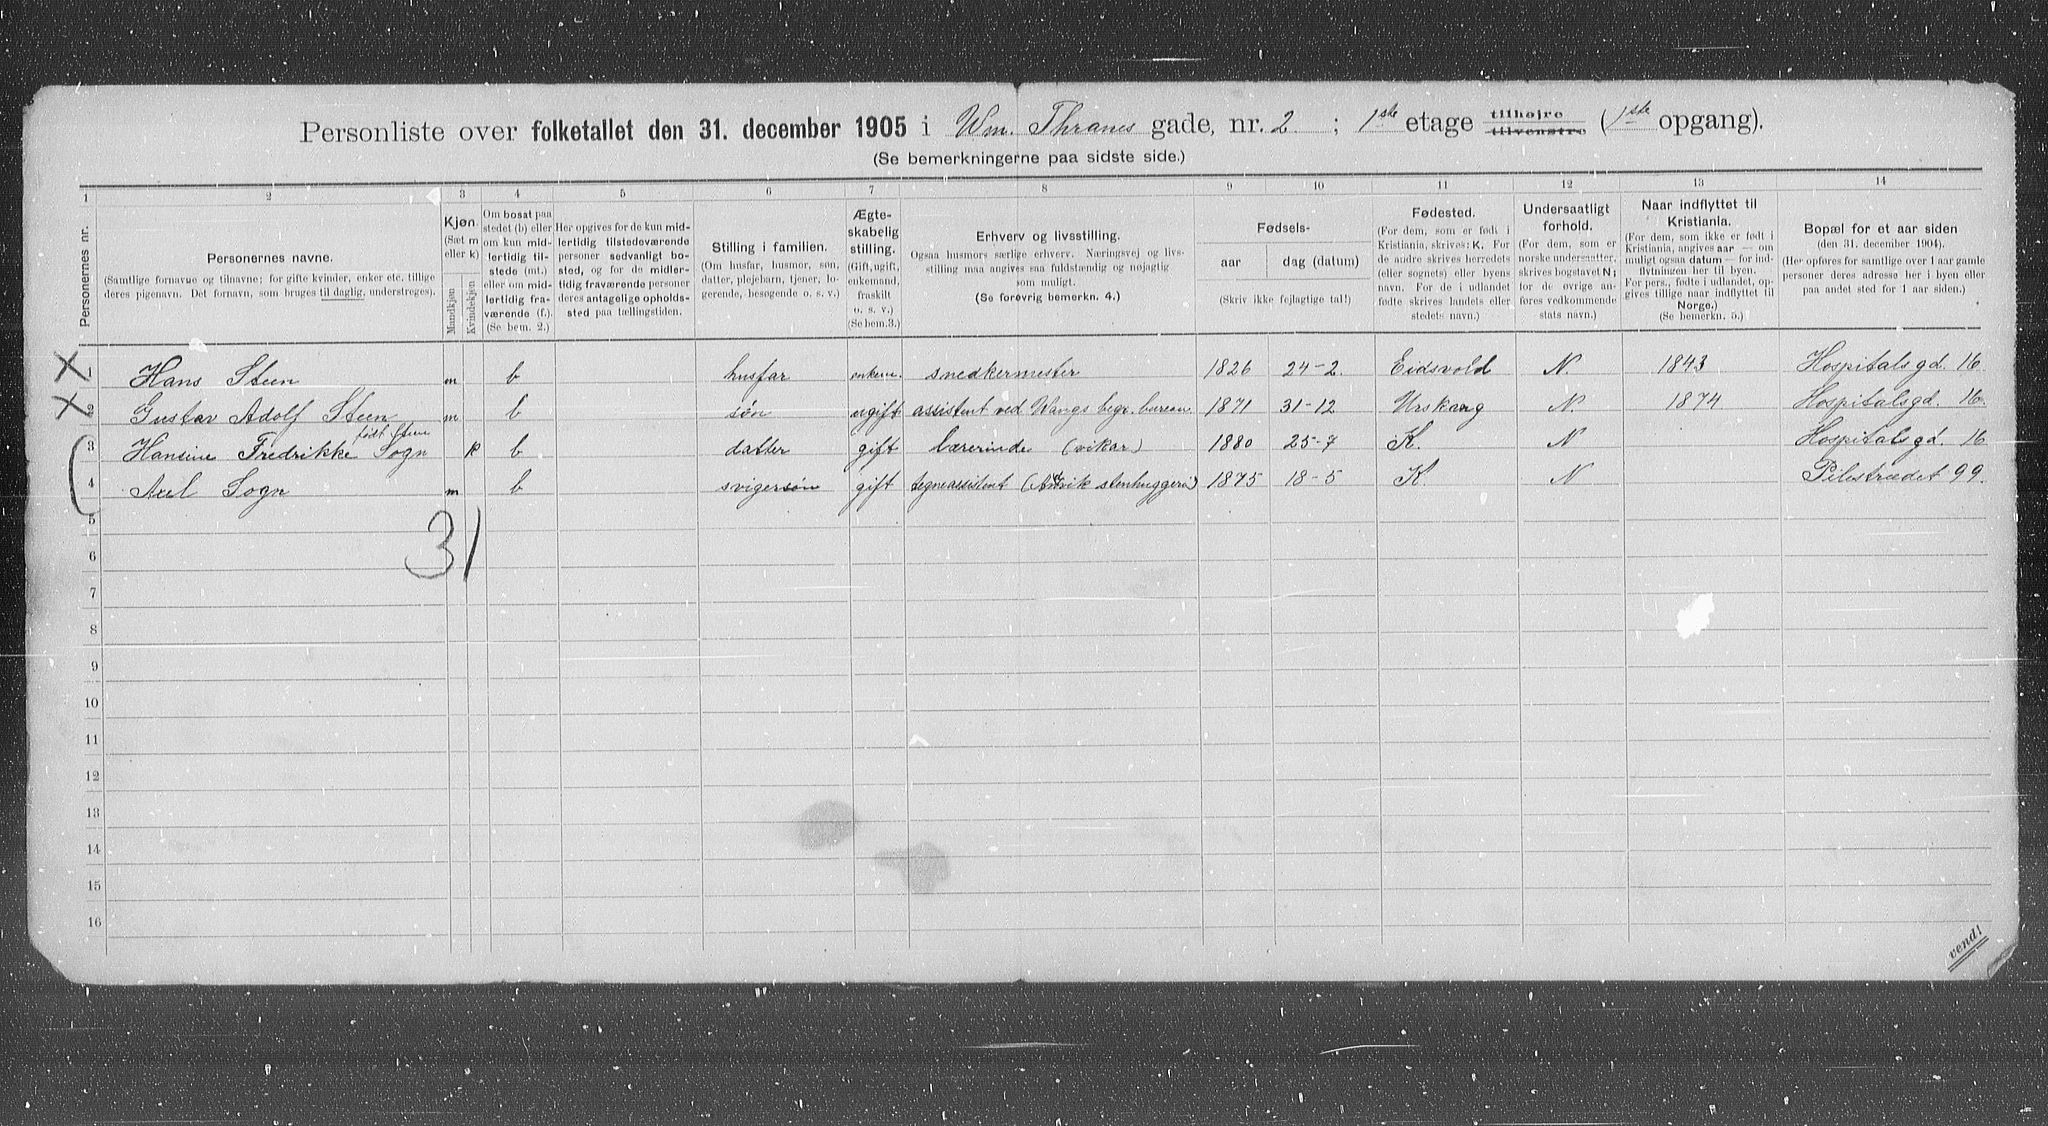 Personliste over folketallet den 31. december 1905 i Wm. Thranes gade, nr. 2 ; 1ste etage tilhøjre tilvenstre (1ste opgang).
(Se bemerkningerne paa sidste side.)
1 2 3 4 5 6 7 8 9 10 11 12 13 14
Personernes nr.
Personernes navne.
(Samtlige fornavne og tilnavne; for gifte kvinder, enker etc. tillige
deres pigenavn. Det fornavn, som bruges til daglig, understreges).
Kjøn.
(Sæt m
eller k)
Mandkjøn
Kvindekjøn
Om bosat paa
stedet (b) eller
om kun mid-
lertidig til-
stede (mt.)
eller om mid-
lertidig fra-
værende (f.).
(Se bem. 2.)
Her opgives for de kun mid-
lertidig tilstedeværende
personer sedvanligt bo-
sted, og for de midler-
tidig fraværende personer
deres antagelige opholds-
sted paa tællingstiden.
Stilling i familien.
(Om husfar, husmor, søn,
datter, plejebarn, tjener, lo-
gerende, besøgende o. s. v.)
Ægte-
skabelig
stilling.
(Gift, ugift,
enkemand,
fraskilt
o. s. v.)
(Se bem.3.)
Erhverv og livsstilling.
Ogsaa husmors særlige erhverv. Næringsvej og livs-
stilling maa angives saa fuldstændig og nøjagtig
som muligt.
(Se forøvrig bemerkn. 4.)
Fødsels-
aar dag (datum)
(Skriv ikke fejlagtige tal!)
Fødested.
(For dem, som er født i
Kristiania, skrives: K. For
de andre skrives herredets
(eller sognets) eller byens
navn. For de i udlandet
fødte skrives landets eller
stedets navn.)
Undersaatligt
forhold.
(For dem, som er
norske undersaatter,
skrives bogstavet N;
for de øvrige an-
føres vedkommende
stats navn.)
Naar indflyttet til
Kristiania.
(For dem, som ikke er født i
Kristiania, angives aar — om
muligt ogsaa datum — for ind-
flytningen her til byen.
For pers., fødte i udlandet, op-
gives tillige naar indflyttet til
Norge.)
(Se bemerkn. 5.)
Bopæl for et aar siden
(den 31. december 1904).
(Her opføres for samtlige over 1 aar gamle
personer deres adresse her i byen eller
paa andet sted for 1 aar siden.)
X 1 Hans Steen m b husfar enkem. snedkermester 1826 24-2. Eidsvold N. 1843 Hospitalsgd. 16.
X 2 Gustav Adolf Steen m b søn ugift assistent ved Wangs begr. bureau 1871 31-12 Urskoug N. 1874 Hospitalsgd. 16.
født Steen
3 Hansine Fredrikke Sogn k b datter gift lærerinde (vikar) 1880 25-7 K. N Hospitalsgd. 16
4 Axel Sogn m b svigersøn gift tegneassistent stenhuggeri) 1875 18-5 K N Pilestrædet 99.
5
31
6
7
8
9
10
11
12
13
14
15
16
vend!